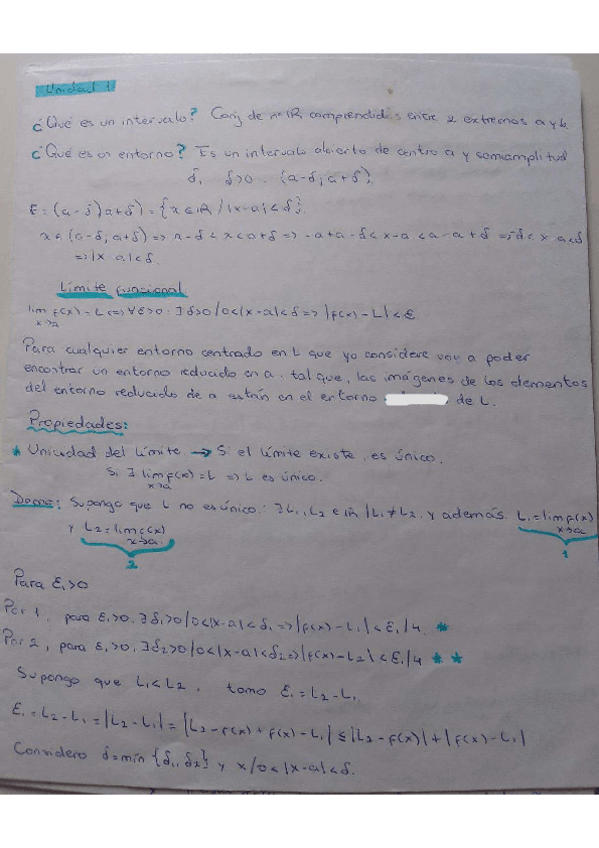 Unidad 1
¿Qué es un intervalo? Conj de nº IR comprendidos entre 2 extremos a y b.
¿Qué es un entorno? Es un intervalo abierto de centro a y semiamplitud
δ, δ>0. (a-δ; a+δ).
E = (a-δ; a+δ) = {x ∈ IR / |x-a| < δ}.
x ∈ (a-δ; a+δ) => a-δ < x < a+δ => -a+a-δ < x-a < a-a+δ => -δ < x-a < δ
=> |x-a| < δ.
Límite funcional
lim f(x) = L <=> ∀ε>0: ∃ δ>0 / 0<|x-a|<δ => |f(x)-L| < ε
x→a
Para cualquier entorno centrado en L que yo considere voy a poder
encontrar un entorno reducido en a, tal que, las imágenes de los elementos
del entorno reducido de a están en el entorno de L.
Propiedades:
* Unicidad del límite → Si el límite existe, es único.
Si ∃ lim f(x) = L => L es único.
x→a
Demo: Supongo que L no es único: ∃ L₁, L₂ ∈ IR / L₁ ≠ L₂, y además. L₁ = lim f(x)
x→a
1
y L₂ = lim f(x)
x→a
2
Para ε₁>0
Por 1, para ε₁>0, ∃ δ₁>0 / 0<|x-a|<δ₁ => |f(x)-L₁| < ε₁/4. *
Por 2, para ε₁>0, ∃ δ₂>0 / 0<|x-a|<δ₂ => |f(x)-L₂| < ε₁/4 * *
Supongo que L₁<L₂, tomo ε₁ = L₂-L₁.
ε₁ = L₂-L₁ = |L₂-L₁| = |L₂-f(x)+f(x)-L₁| ≤ |L₂-f(x)| + |f(x)-L₁|
Considero δ = mín {δ₁, δ₂} y x / 0<|x-a|<δ.